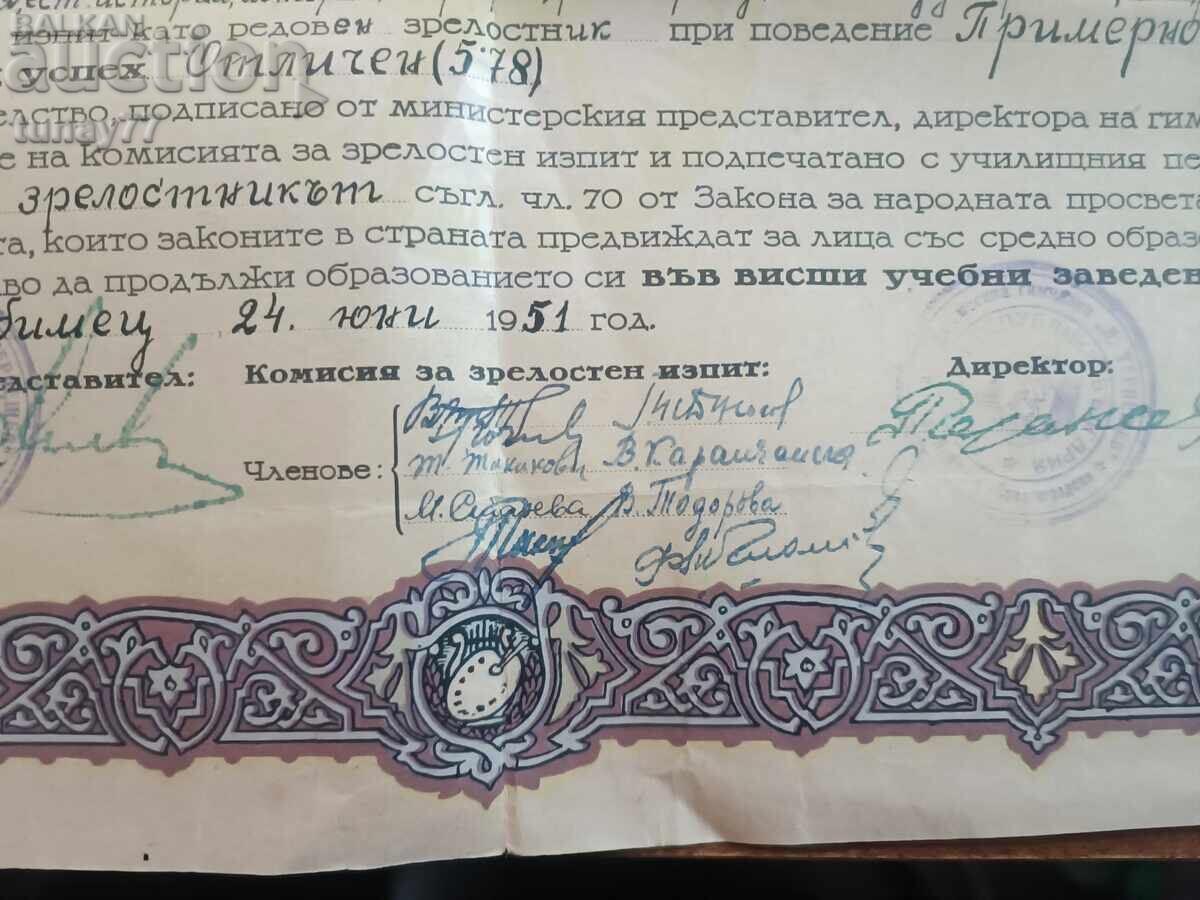 BALKAN
auction
tunay77
изпит като редовен зрелостник при поведение Примерно
успех Отличен (5·78)
елство, подписано от министерския представител, директора на гим
е на комисията за зрелостен изпит и подпечатано с училищния пе
зрелостникът съгл. чл. 70 от Закона за народната просвета
та, които законите в страната предвиждат за лица със средно образо
во да продължи образованието си във висши учебни заведен
бимец 24. юни 1951 год.
едставител: Комисия за зрелостен изпит: Директор:
Членове:
В. Караичанска
М. Стаева В. Тодорова